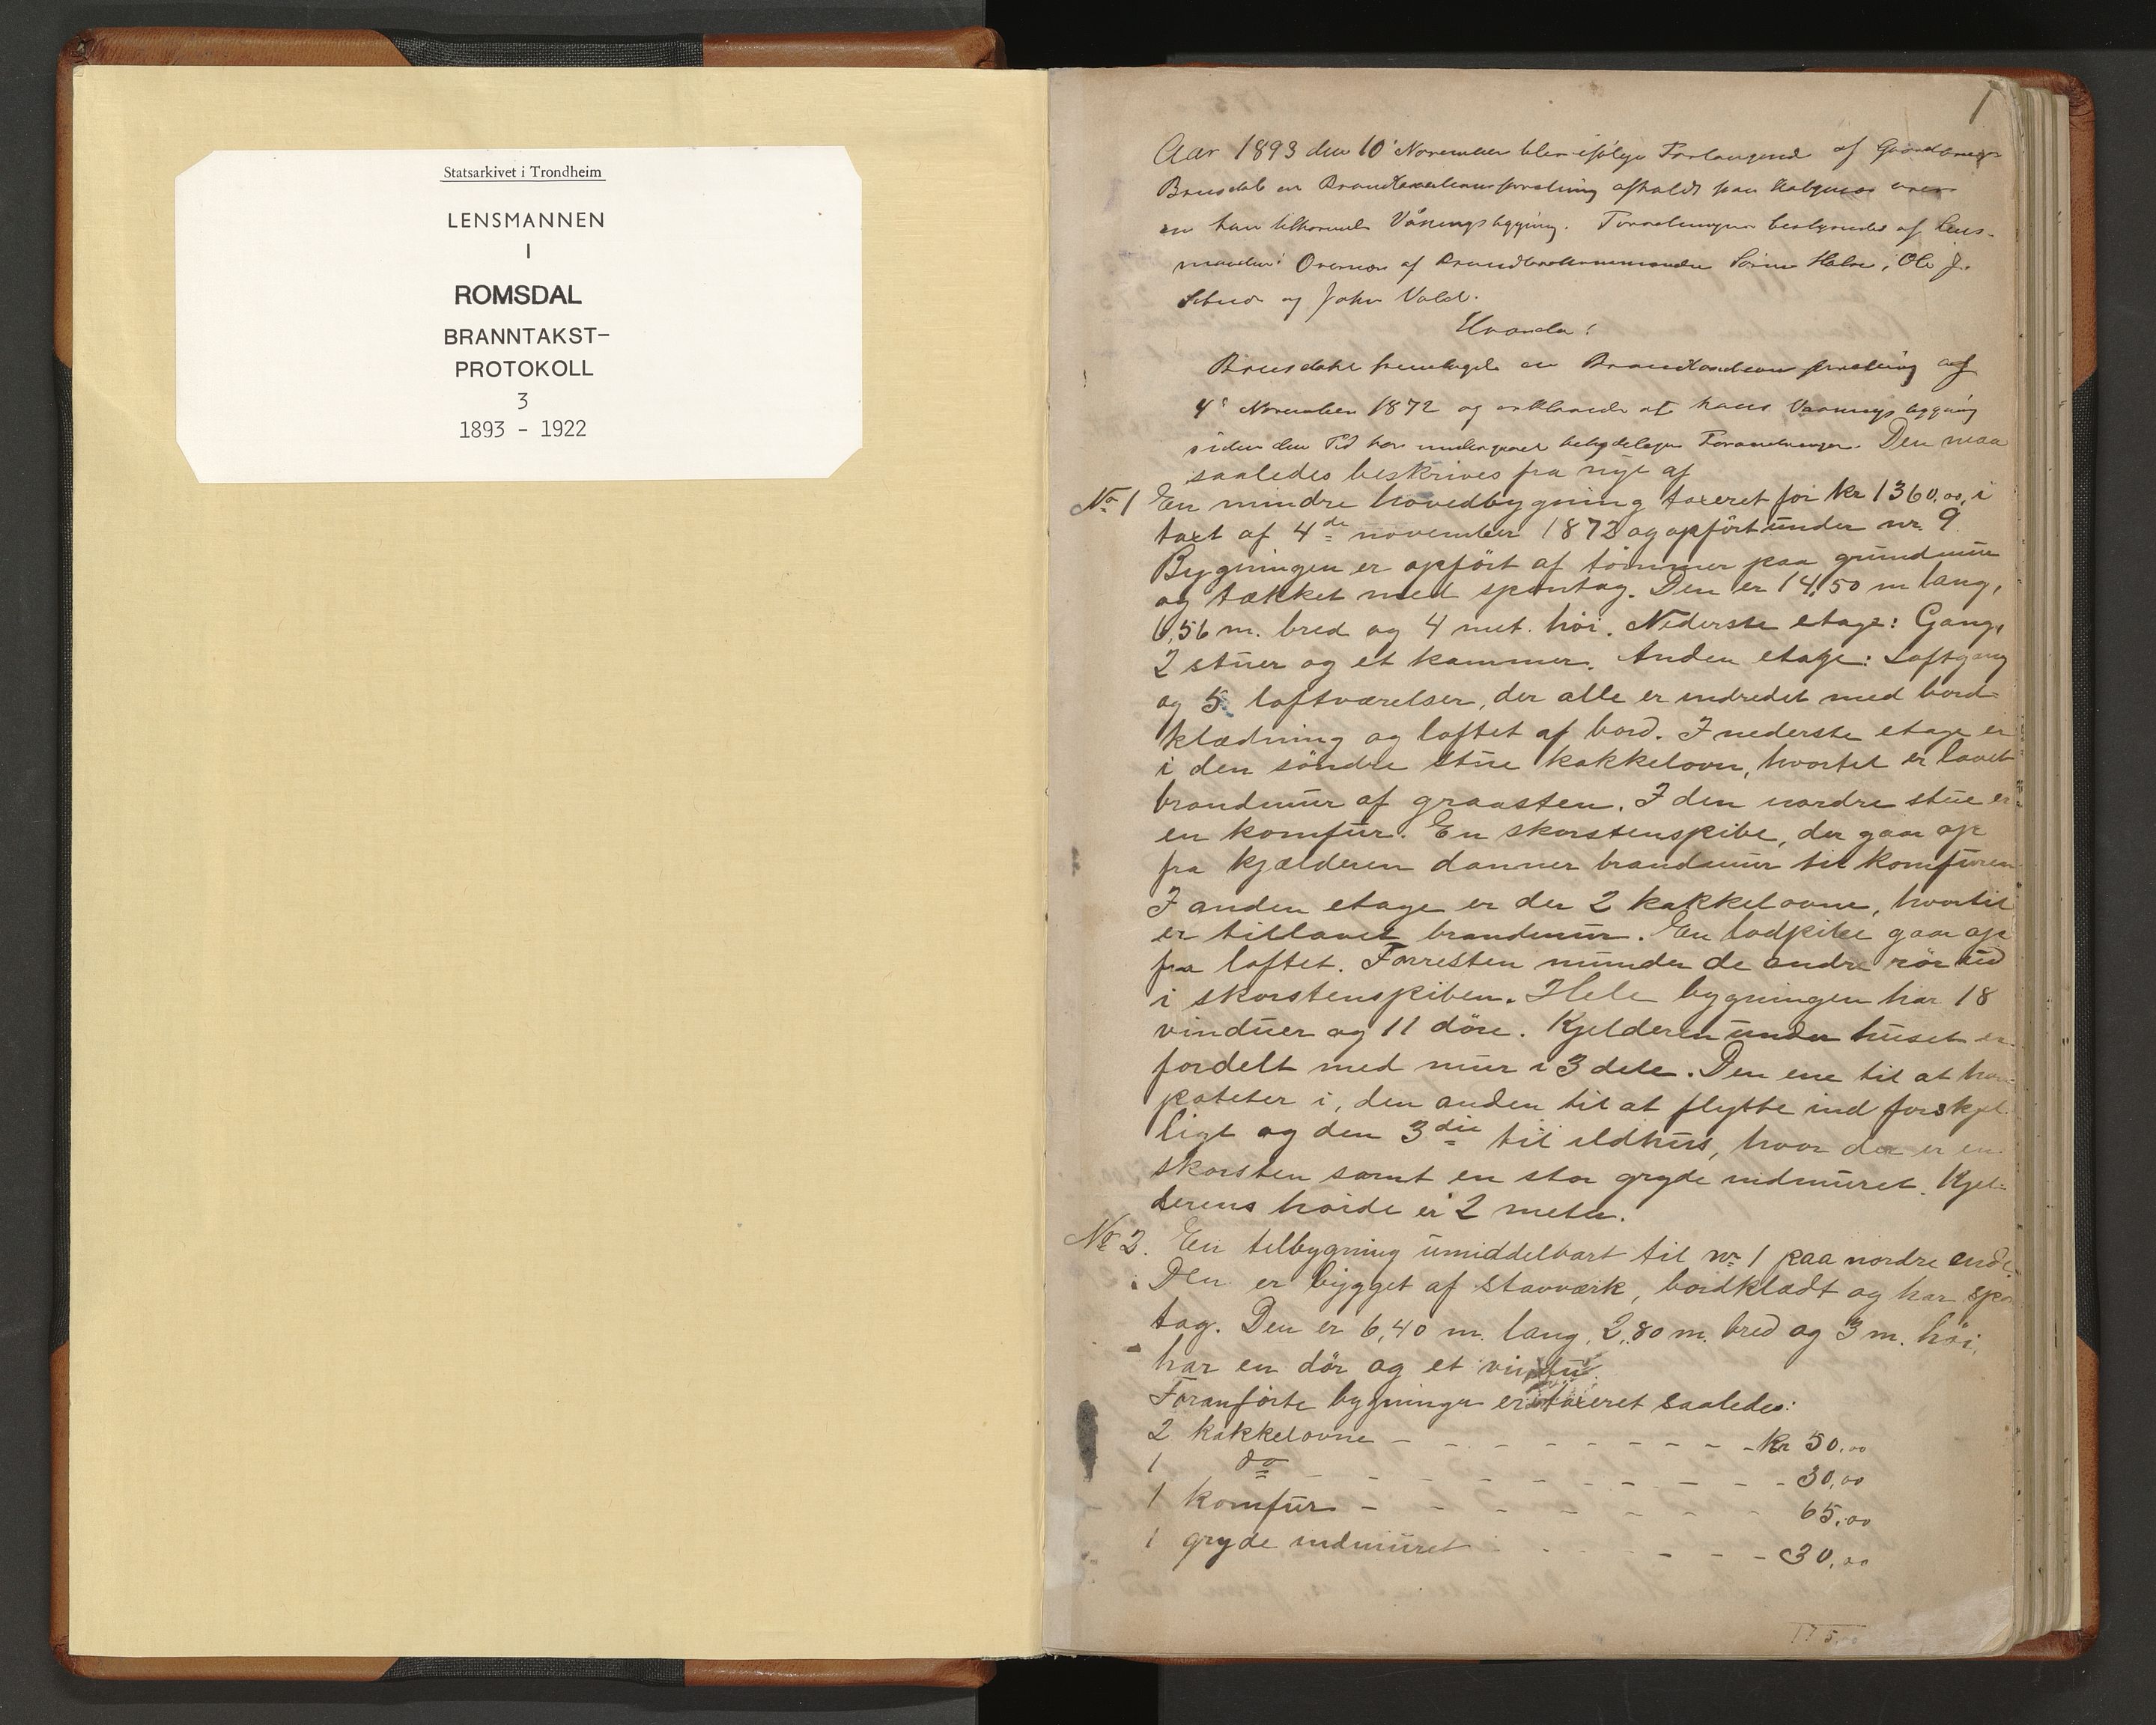 Statsarkivet i Trondheim
LENSMANNEN
I
ROMSDAL
BRANNTAKST-
PROTOKOLL
3
1893 - 1922
1
Aar 1893 den 10' November blev ifølge Forlangende af
Brusdal en Brandtaxationsforretning afholdt paa over
en ham tilhørende Våningsbygning. Forretningen bestyredes af Lens-
manden: Overvær af Brandtaxtkommissionen Halse, Ole J.
og John Vold.
Hvorda:
Brusdahl fremlagde en Brandtaxtions forretning af
4' November 1872 og erklærede at hans Vaanings bygning
siden den Tid har undergaaet betydelige Forandringer. Den maa
saaledes beskrives fra nyt af
No 1 En mindre hovedbygning taxeret for kr 1360,00, i
taxt af 4de november 1872 og opført under nr. 9.
Bygningen er opført af tømmer paa grundmur
og tækket med spontag. Den er 14,50 m lang,
6,56 m. bred og 4 met. høi. Nederste etage: Gang,
2 stuer og et kammer. Anden etage: Loftgang
og 5 loftværelser, der alle er indredet med bord-
klædning og loftet af bord. I nederste etage er
i den søndre stue kakkelovn, hvortil er lavet
brandmur af graasten. I den nordre stue er
en komfur. En skorstenspibe, der gaar op
fra kjælderen danner brandmur til komfuren
I anden etage er der 2 kakkelovne, hvortil
er tillavet brandmur. En lodpibe gaar op
fra loftet. Forresten munder de andre rør ud
i skorstenspiben. Hele bygningen har 18
vinduer og 11 døre. Kjelderen under huset er
fordelt med mur i 3 dele. Den ene til at have
poteter i, den anden til at flytte ind forskjel-
ligt og den 3die til ildhus, hvor der er en
skorsten samt en stor gryde indmuret. Kjel-
derens høide er 2 meter.
No 2. En tilbygning umiddelbart til no 1 paa nordre ende.
Den er bygget af stavværk, bordklædt og har spon
tag. Den er 6,40 m. lang, 2,80 m. bred og 3 m. høi,
har en dør og et vindu.
Foranførte bygninger er taxeret saaledes:
2 kakkelovne - - - - - - - - - kr 50,00
1 do - - - - - - - - - 30,00
1 komfur - - - - - - - - 65,00
1 gryde indmuret - - - - - - 30,00
175,00